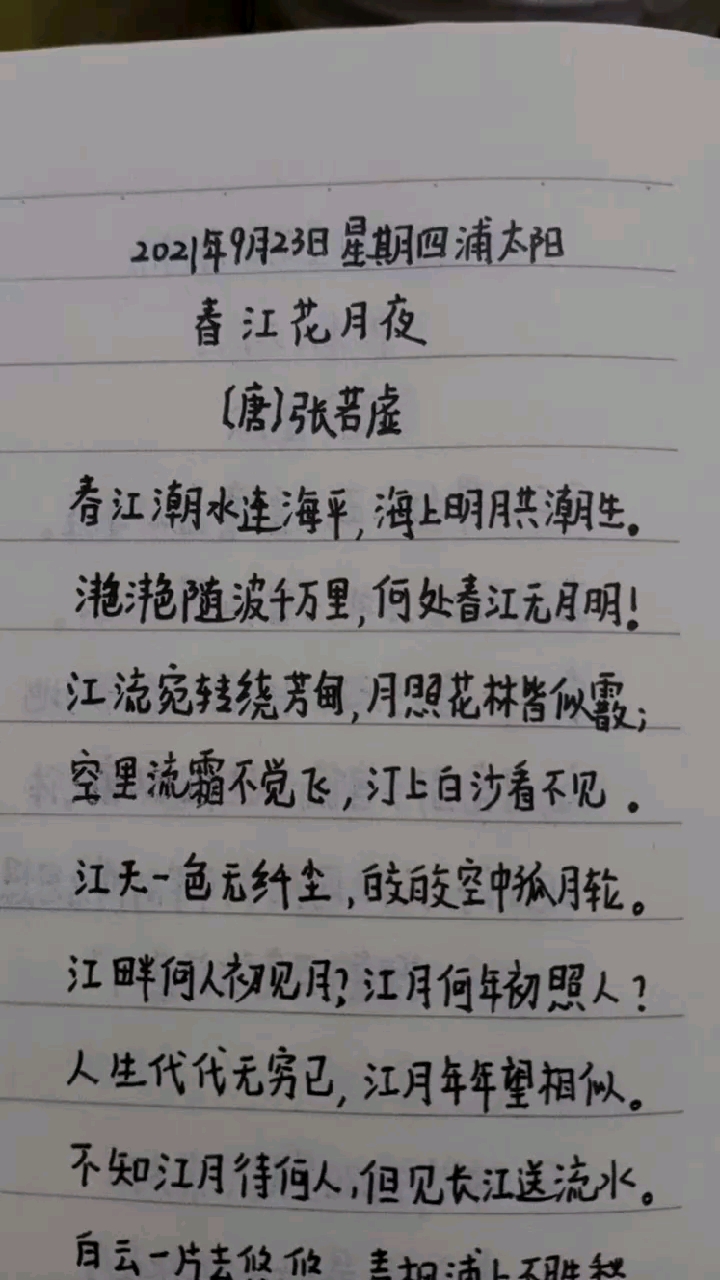 2021年9月23日 星期四 浦太阳
春江花月夜
〔唐〕张若虚
春江潮水连海平,海上明月共潮生。
滟滟随波千万里,何处春江无月明!
江流宛转绕芳甸,月照花林皆似霰;
空里流霜不觉飞,汀上白沙看不见。
江天一色无纤尘,皎皎空中孤月轮。
江畔何人初见月?江月何年初照人?
人生代代无穷已,江月年年望相似。
不知江月待何人,但见长江送流水。
白云一片去悠悠 青枫浦上不胜